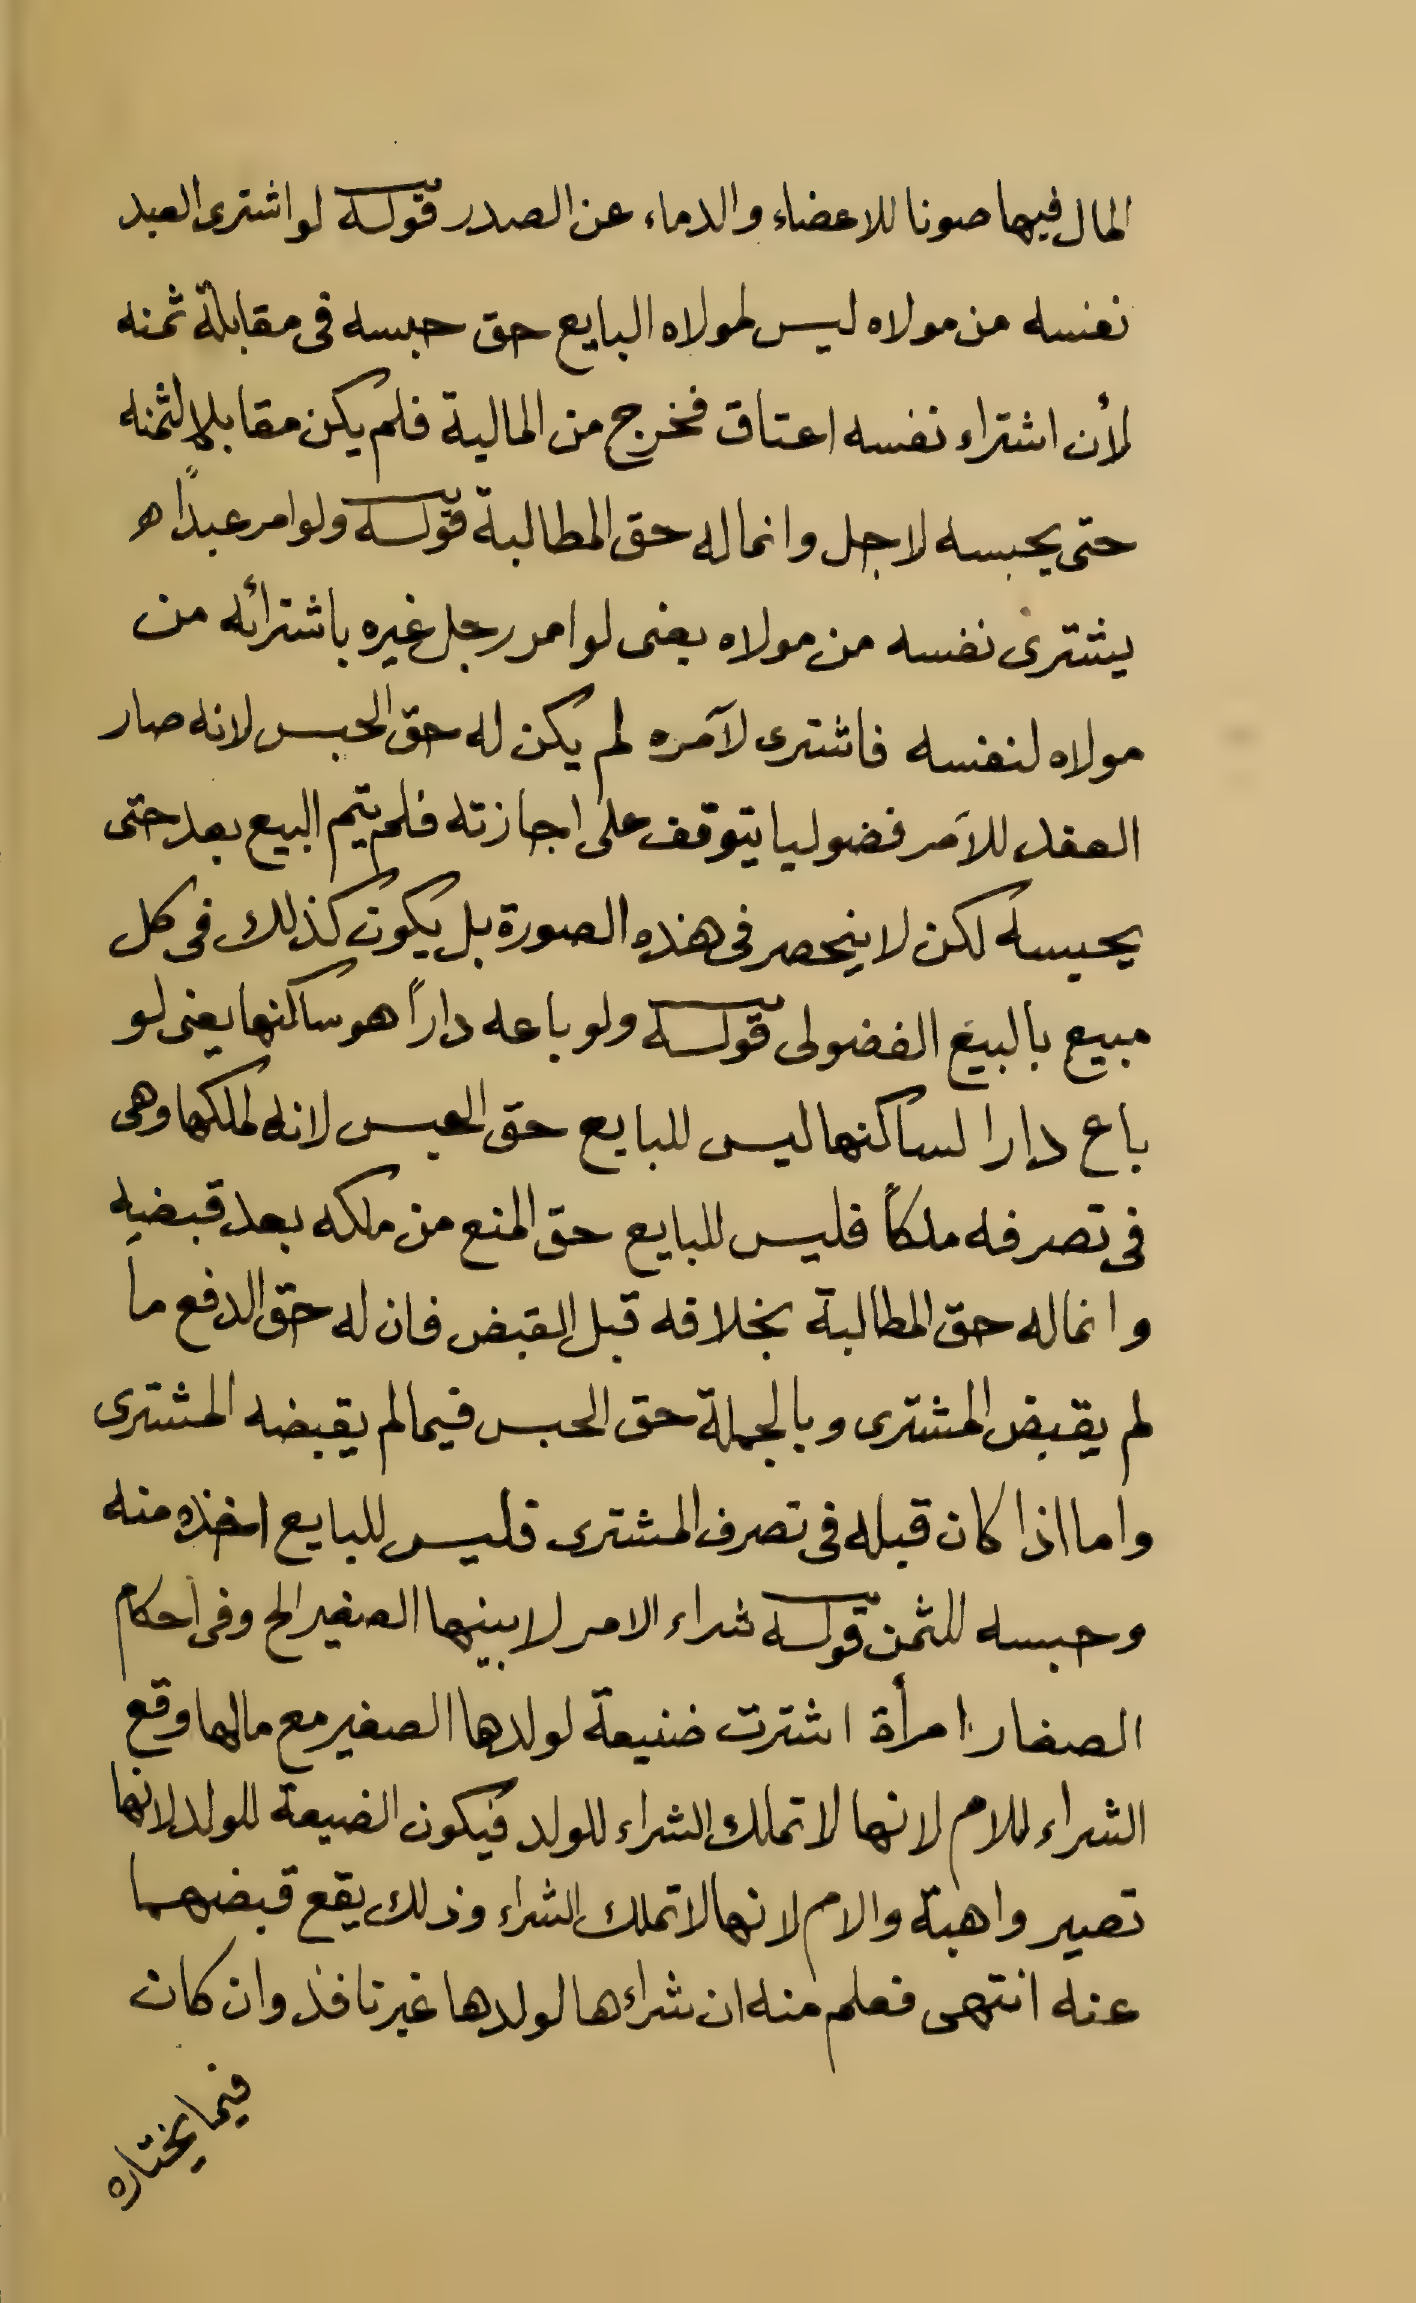 المال فيها صونا للاعضاء والدماء عن الصدر قوله لو اشترى العبد
نفسه من مولاه ليس لمولاه البايع حق حبسه فى مقابلة ثمنه
لأن اشتراء نفسه اعتاق فخرج من المالية فلم يكن مقابلا لثمنه
حتى يحبسه لاجل وانما له حق المطالبة قوله ولو امر عبدًا
يشترى نفسه من مولاه يعنى لو امر رجل غيره باشترائه من
مولاه لنفسه فاشترى لآمره لم يكن له حق الحبس لانه صار
العقد للآمر فضوليا يتوقف على اجازته فلم يتم البيع بعد حتى
يحبسه لكن لا ينحصر فى هذه الصورة بل يكون كذلك فى كل
مبيع بالبيع الفضولى قوله ولو باعه دارًا هو ساكنها يعنى لو
باع دارا لساكنها ليس للبايع حق الحبس لانه لملكها وهى
فى تصرفه ملكاً فليس للبايع حق المنع من ملكه بعد قبضه
وانما له حق المطالبة بخلافه قبل القبض فان له حق الدفع ما
لم يقبض المشترى وبالجملة حق الحبس فيما لم يقبضه المشترى
واما اذا كان قبله فى تصرف المشترى فليس للبايع اخذه منه
وحبسه للثمن قوله شراء الامر لابينها الصغير الخ وفى أحكام
الصغار امرأة اشترت ضنيعة لولدها الصغير مع مالها وقع
الشراء للام لانها لا تملك الشراء للولد فيكون الضيعة للولد لانها
تصير واهبة والام لانها لا تملك الشراء وذلك يقع قبضهما
عنه انتهى فعلم منه ان شراءها لولدها غير نافذ وان كان
فيما يختاره